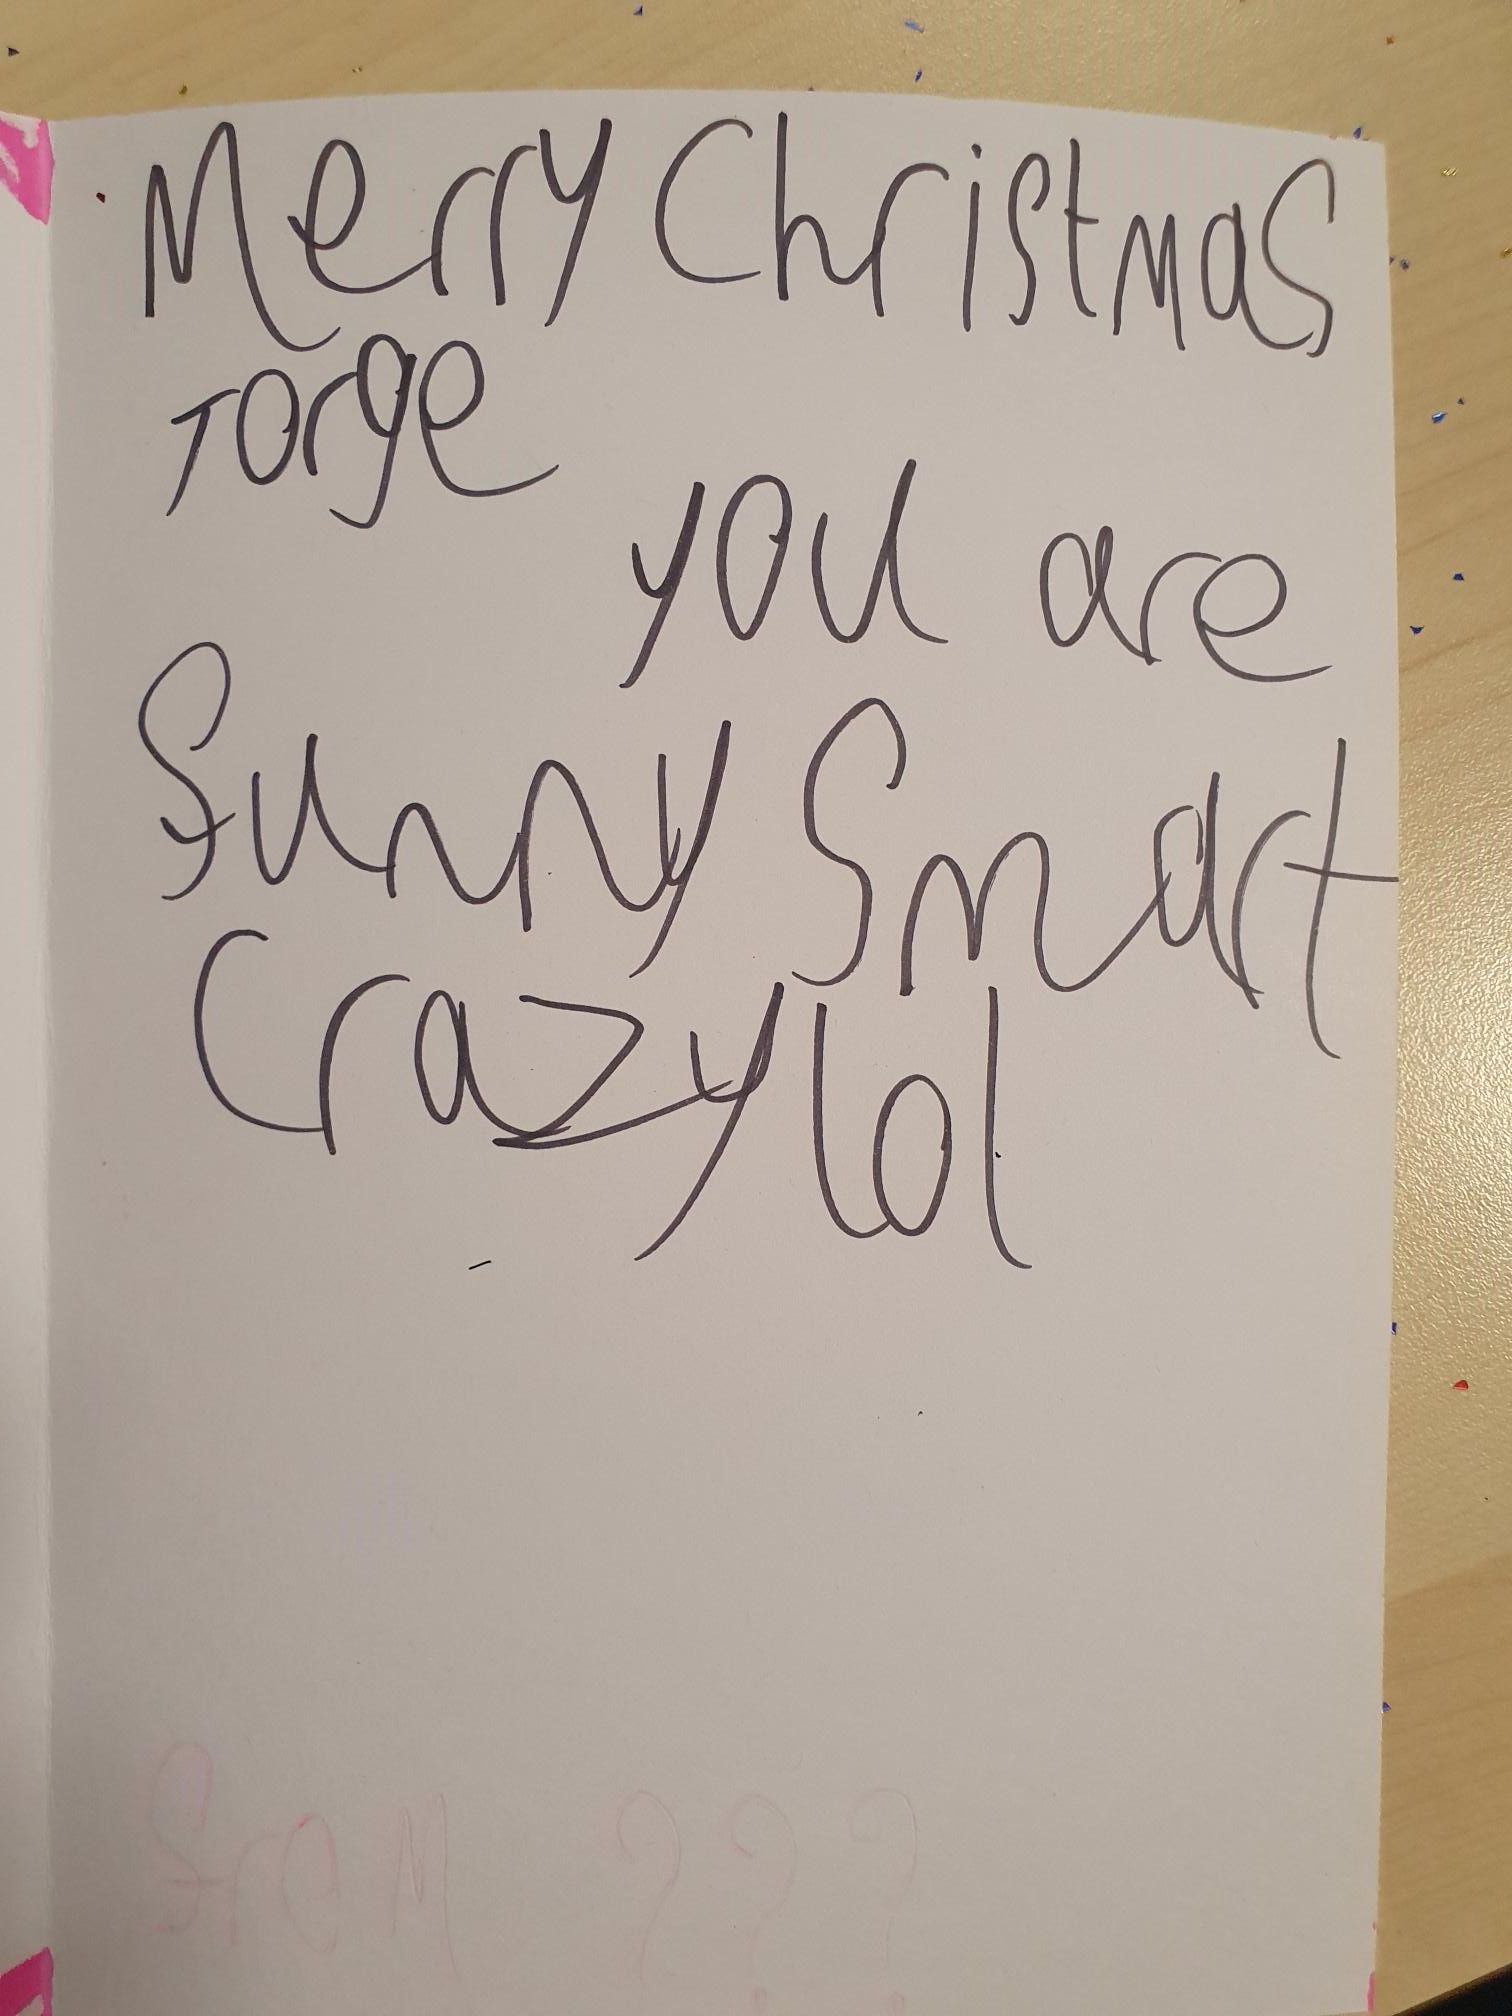 Merry Christmas
Torge
you are
funny Smart
Crazy lol
from ???